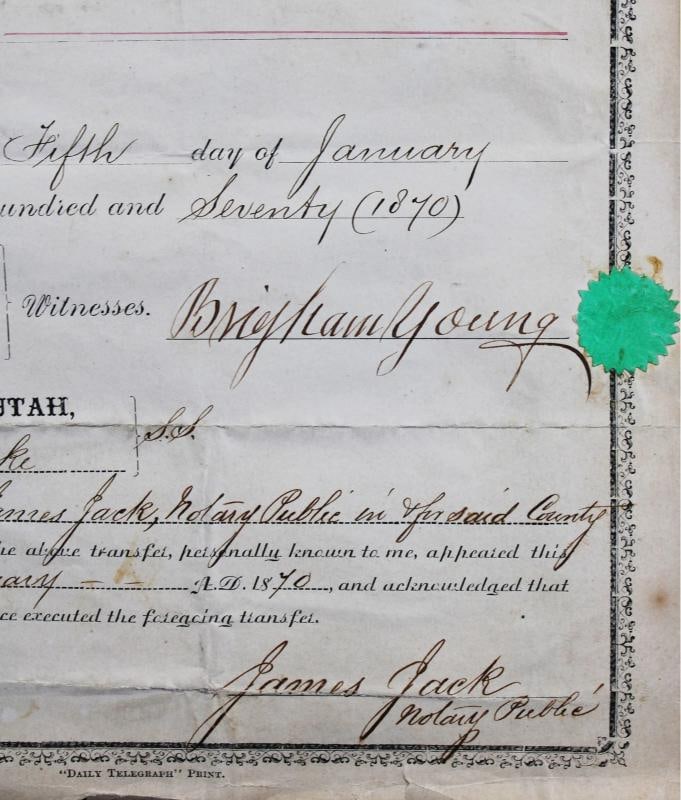 Fifth day of January
undred and Seventy (1870)
Witnesses. Brigham Young
UTAH,
S.S.
ke
ames Jack, Notary Public in & for said County
he above transfer, personally known to me, appeared this
ary - - A.D. 1870, and acknowledged that
ce executed the foregoing transfer.
James Jack
Notary Public
"DAILY TELEGRAPH" PRINT.